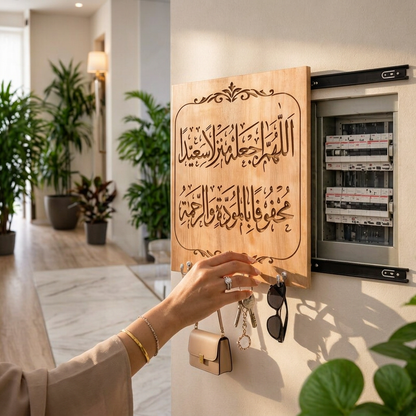 اللهم اجعله منزلا سعيدا
محفوفا بالمودة والرحمة